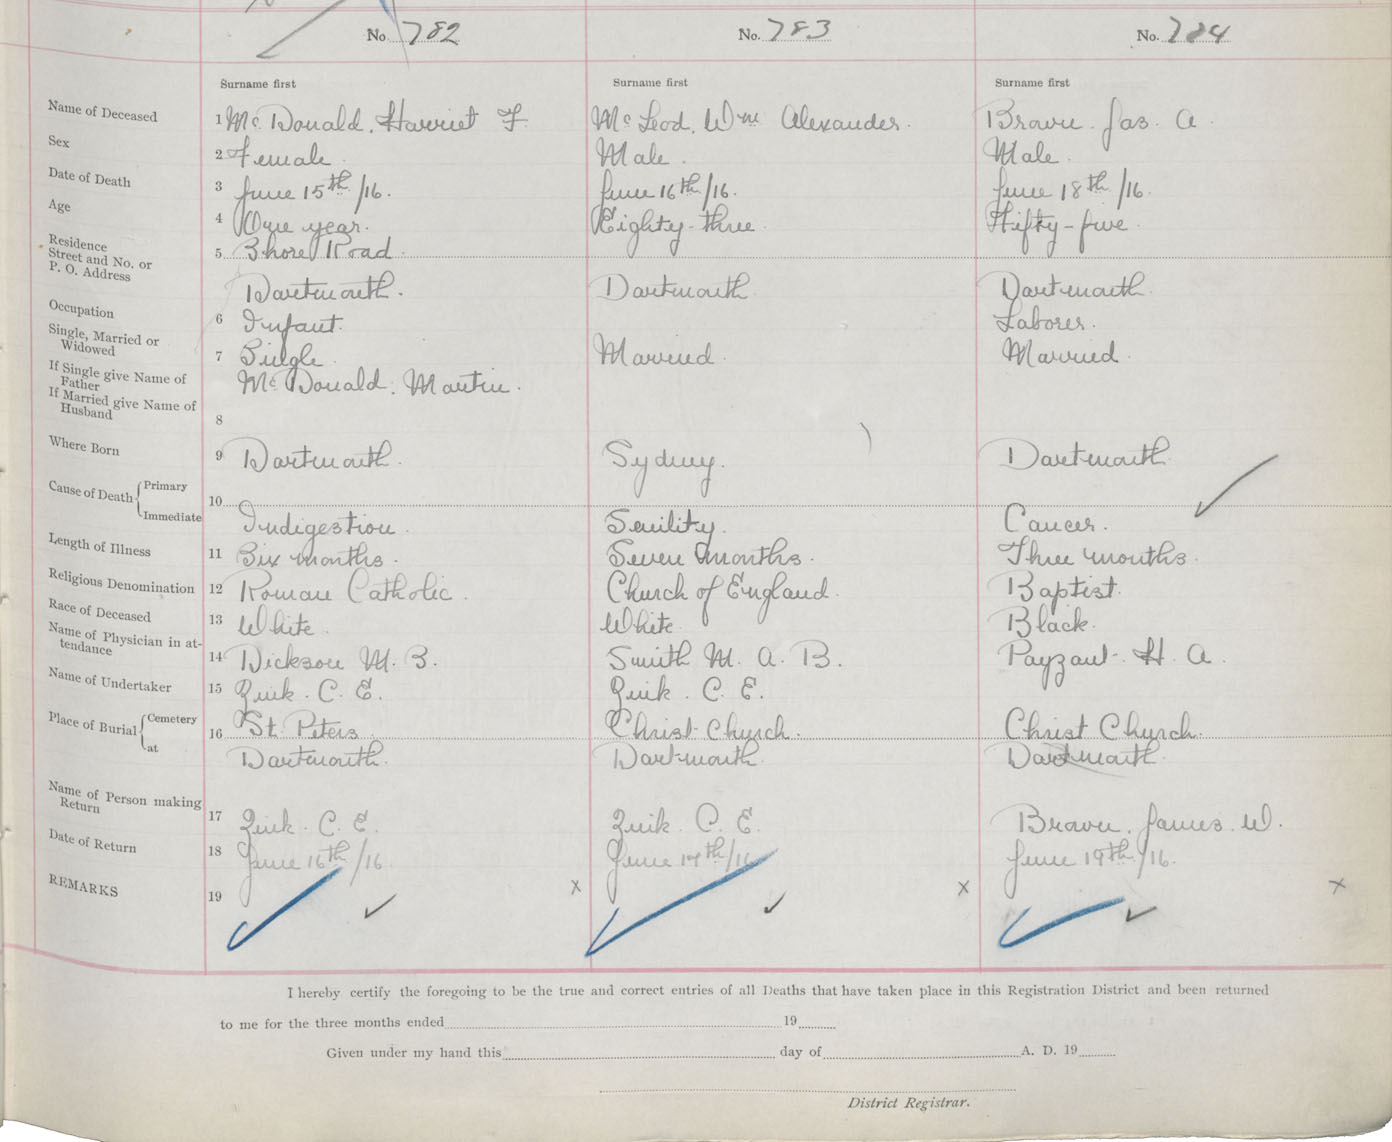 No. 782 No. 783 No. 784
Surname first Surname first Surname first
Name of Deceased 1 McDonald, Harriet F. McLeod, Wm Alexander. Brown. Jas. A.
Sex 2 Female. Male. Male.
Date of Death 3 June 15th/16. June 16th/16. June 18th/16.
Age 4 One year. Eighty-three. Fifty-five.
Residence
Street and No. or 5 Shore Road.
P. O. Address
Dartmouth. Dartmouth. Dartmouth.
Occupation 6 Infant. Laborer.
Single, Married or
Widowed 7 Single. Married. Married.
If Single give Name of
Father McDonald. Martin.
If Married give Name of
Husband 8
Where Born 9 Dartmouth. Sydney. Dartmouth.
Cause of Death Primary 10
Immediate Indigestion. Senility. Cancer.
Length of Illness 11 Six months. Seven months. Three months.
Religious Denomination 12 Roman Catholic. Church of England. Baptist.
Race of Deceased 13 White. White. Black.
Name of Physician in at-
tendance 14 Dickson M. B. Smith M. A. B. Payzant. H. A.
Name of Undertaker 15 Zink. C. E. Zink. C. E.
Place of Burial Cemetery 16 St. Peters. Christ Church. Christ Church.
at Dartmouth. Dartmouth. Dartmouth.
Name of Person making
Return 17 Zink. C. E. Zink. C. E. Brown. James. W.
Date of Return 18 June 16th/16. June 17th/16 June 19th/16.
REMARKS 19 x x x
I hereby certify the foregoing to be the true and correct entries of all Deaths that have taken place in this Registration District and been returned
to me for the three months ended 19
Given under my hand this day of A. D. 19
District Registrar.